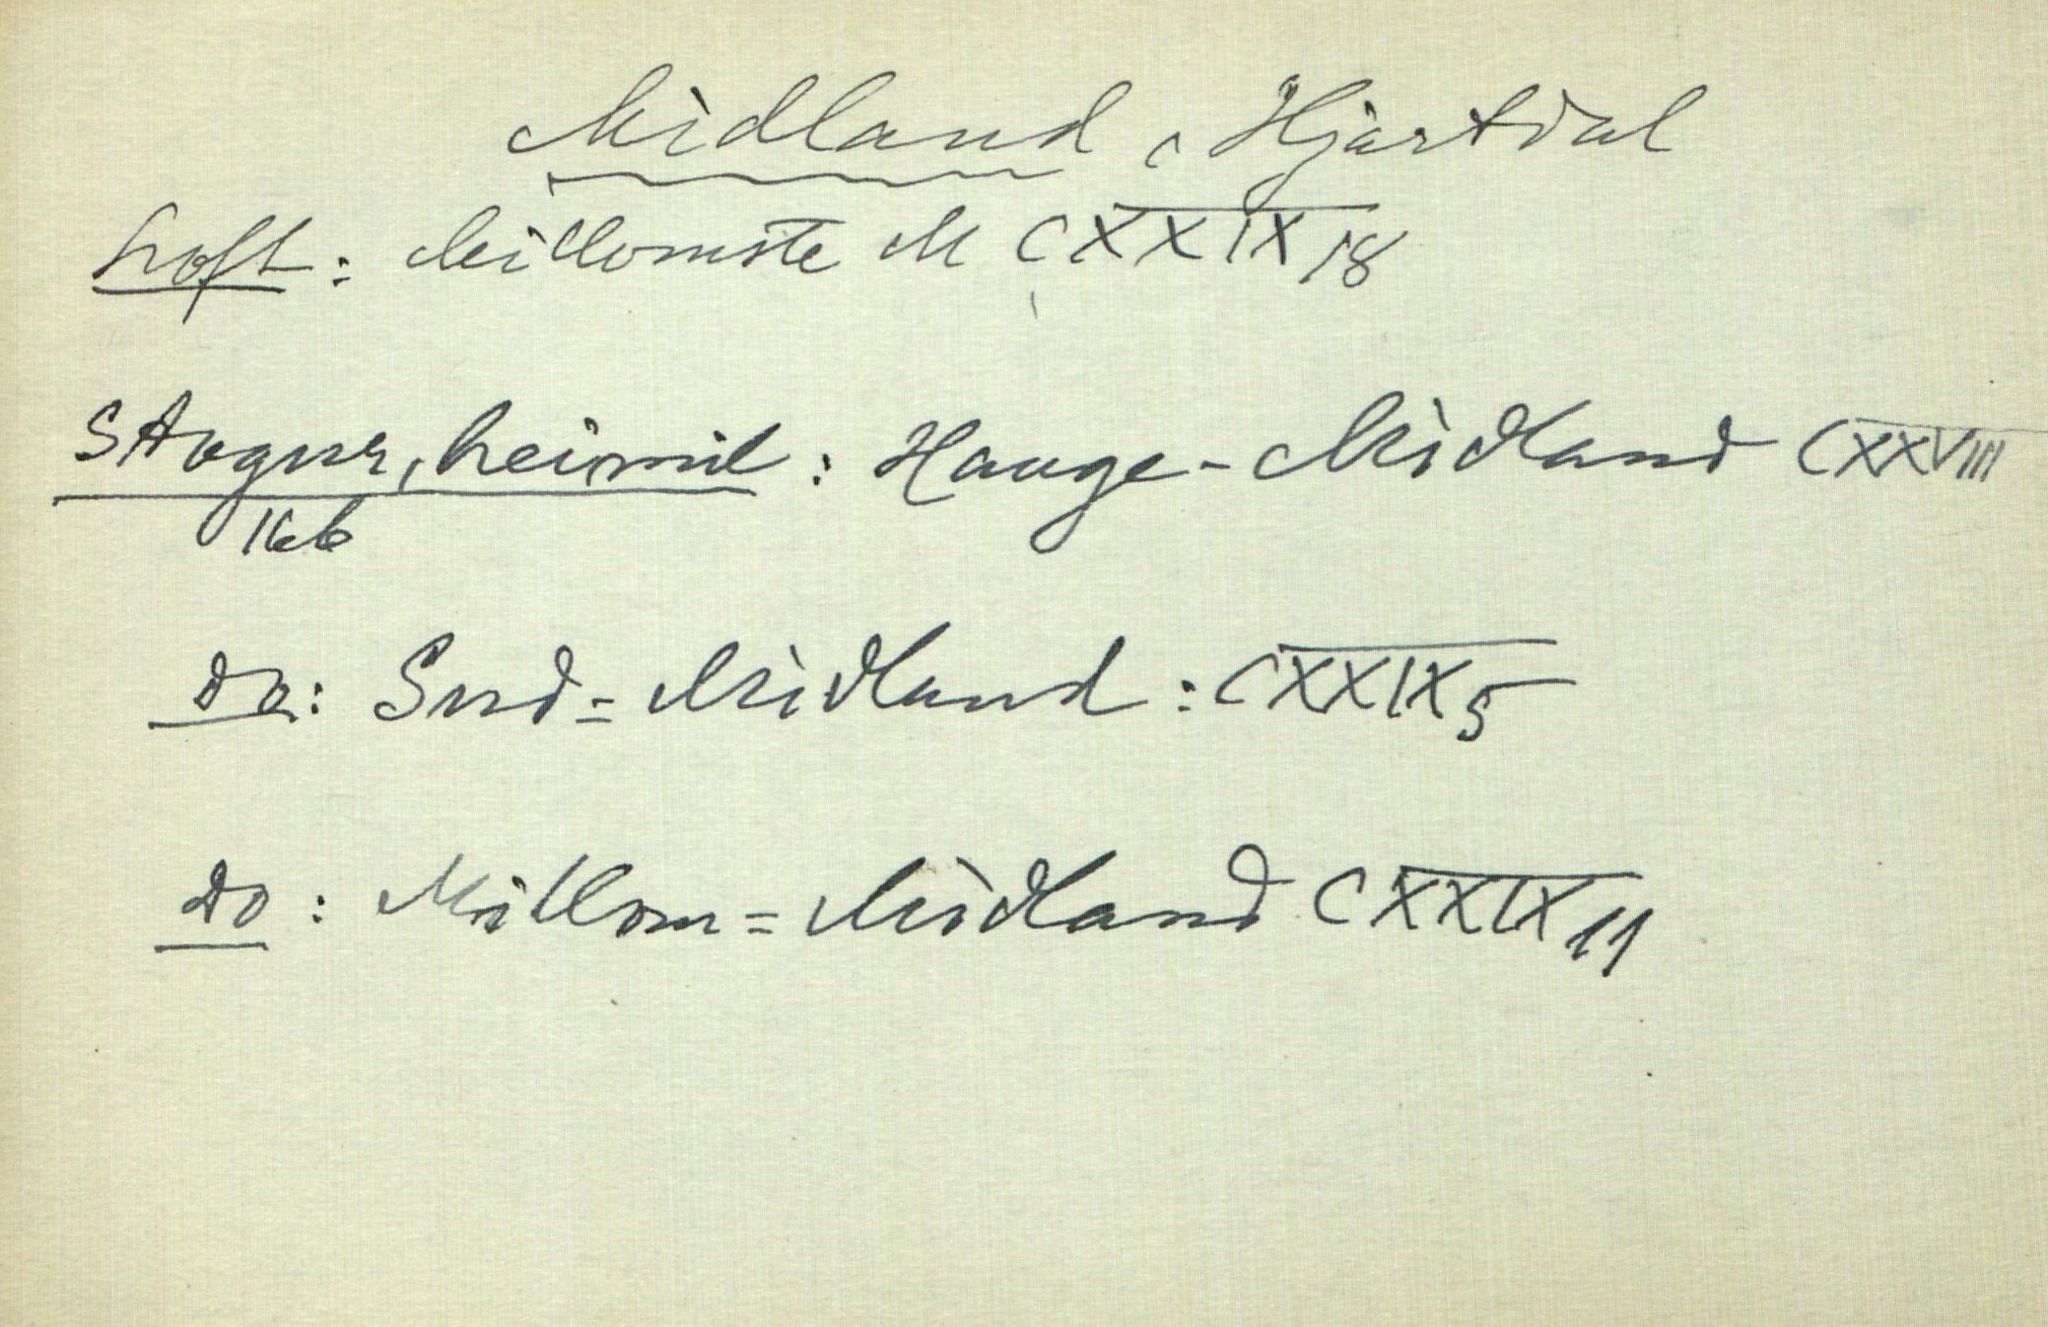 Midland, Hjartdal
Loft: Millomste M CXXIX 18
Stogur, heimil: Hauge-Midland CXXVIII
166
Do: Sud=Midland: CXXIX 5
Do: Millom=Midland CXXIX 11